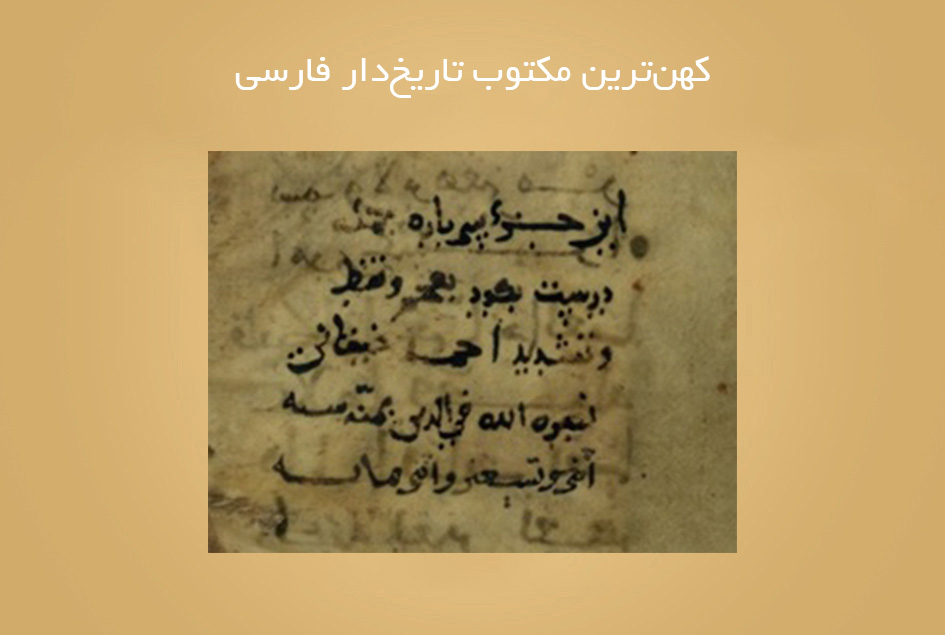 کهن‌ترین مکتوب تاریخ‌دار فارسی
این جزء پیم پاره
درست بکرد بعجم و نقط
و تشدید احمد خیقانی
نصره الله في الدین بمنّه سنه
اثنی و تسعین و اثنی مائه